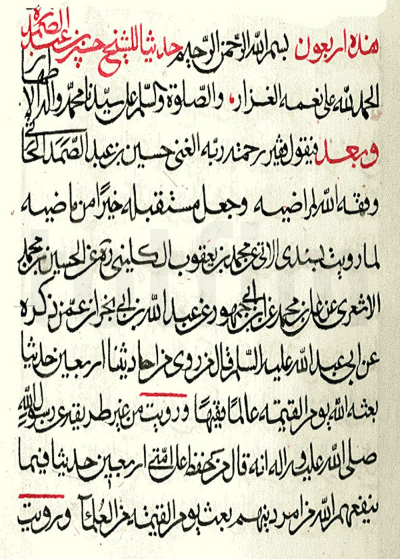 هذه اربعون بسم الله الرحمن الرحيم حديثا للشيخ حسين بن عبد الصمد
الحمد لله على نعمه الغزار، والصلوة والسلم على سيدنا محمد واله الاطهار
وبعد فيقول فقير رحمة ربه الغنى حسين بن عبد الصمد الحا
وفقه الله لمراضيه وجعل مستقبله خيرا من ماضيه
لما رويت بسندى الاتى عن محمد بن يعقوب الكلينى عن الحسين بن محمد
الاشعرى عن على بن محمد عن ابن جمهور عن عبد الله بن عمن ذكره
عن ابى عبد الله عليه السلم قال من روى من احاديثنا اربعين حديثا
بعثه الله يوم القيمة عالما فقيها ورويت من غير طريقه عن رسول الله
صلى الله عليه واله انه قال من حفظ على امتى اربعين حديثا فيما
ينفعهم الله من امر دينهم بعث يوم القيمة من العلماء ورويت